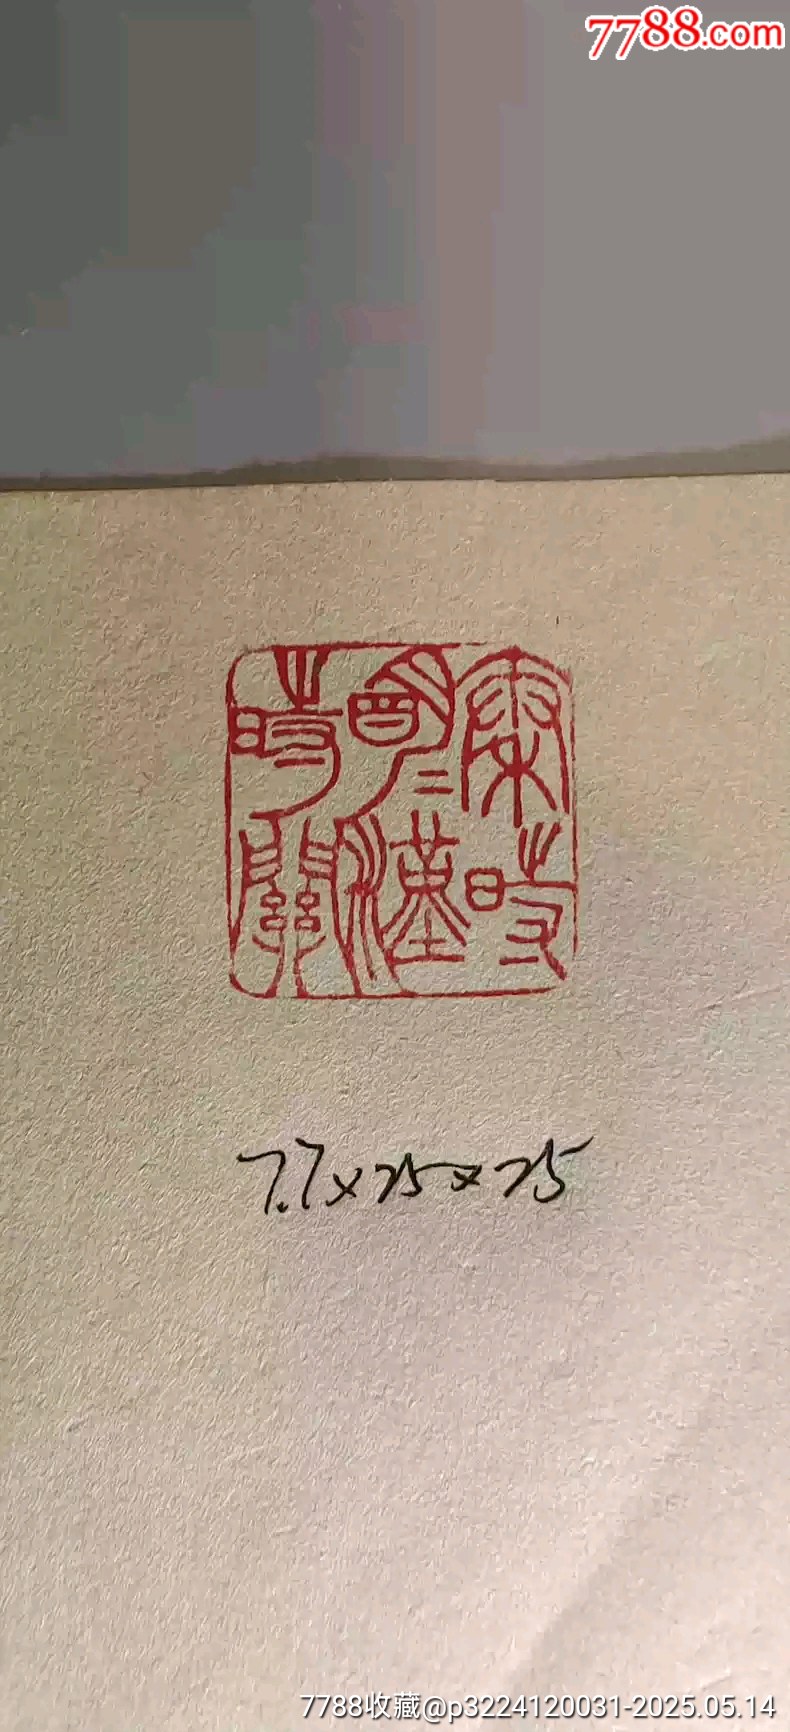 7788.com
秦時
明月漢
時關
7.7×25×25
7788收藏@p3224120031-2025.05.14